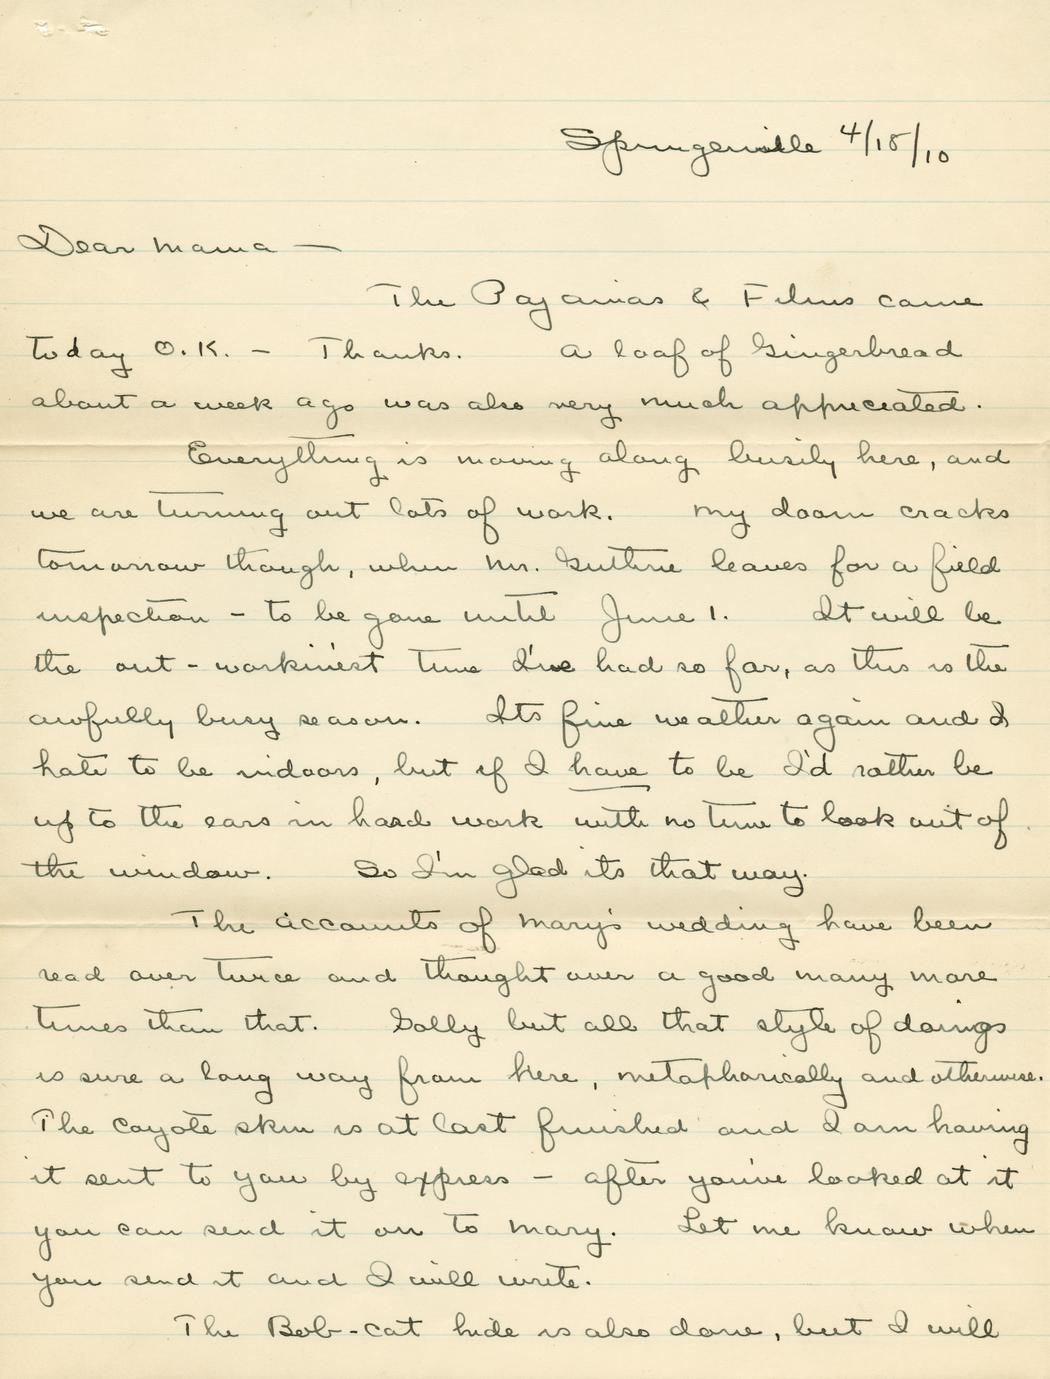 Springerville 4/18/10
Dear Mama —
The Pajamas & Films came
today O.K. — Thanks. A loaf of Gingerbread
about a week ago was also very much appreciated.
Everything is moving along busily here, and
we are turning out lots of work. My doom cracks
tomorrow though, when Mr. Guthrie leaves for a field
inspection — to be gone until June 1. It will be
the out-workin'est time I've had so far, as this is the
awfully busy season. Its fine weather again and I
hate to be indoors, but if I have to be I'd rather be
up to the ears in hard work with no time to look out of
the window. So I'm glad its that way.
The accounts of Mary's wedding have been
read over twice and thought over a good many more
times than that. Golly but all that style of doings
is sure a long way from here, metaphorically and otherwise.
The Coyote skin is at last finished and I am having
it sent to you by express — after you've looked at it
you can send it on to Mary. Let me know when
you send it and I will write.
The Bob-cat hide is also done, but I will